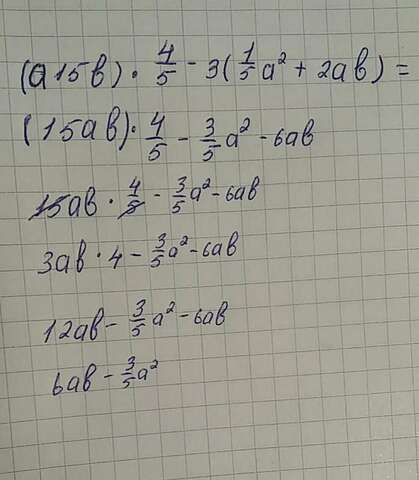 (a15b) · 4/5 - 3(1/5a² + 2ab) =
(15ab) · 4/5 - 3/5a² - 6ab
15ab · 4/5 - 3/5a² - 6ab
3ab · 4 - 3/5a² - 6ab
12ab - 3/5a² - 6ab
6ab - 3/5a²